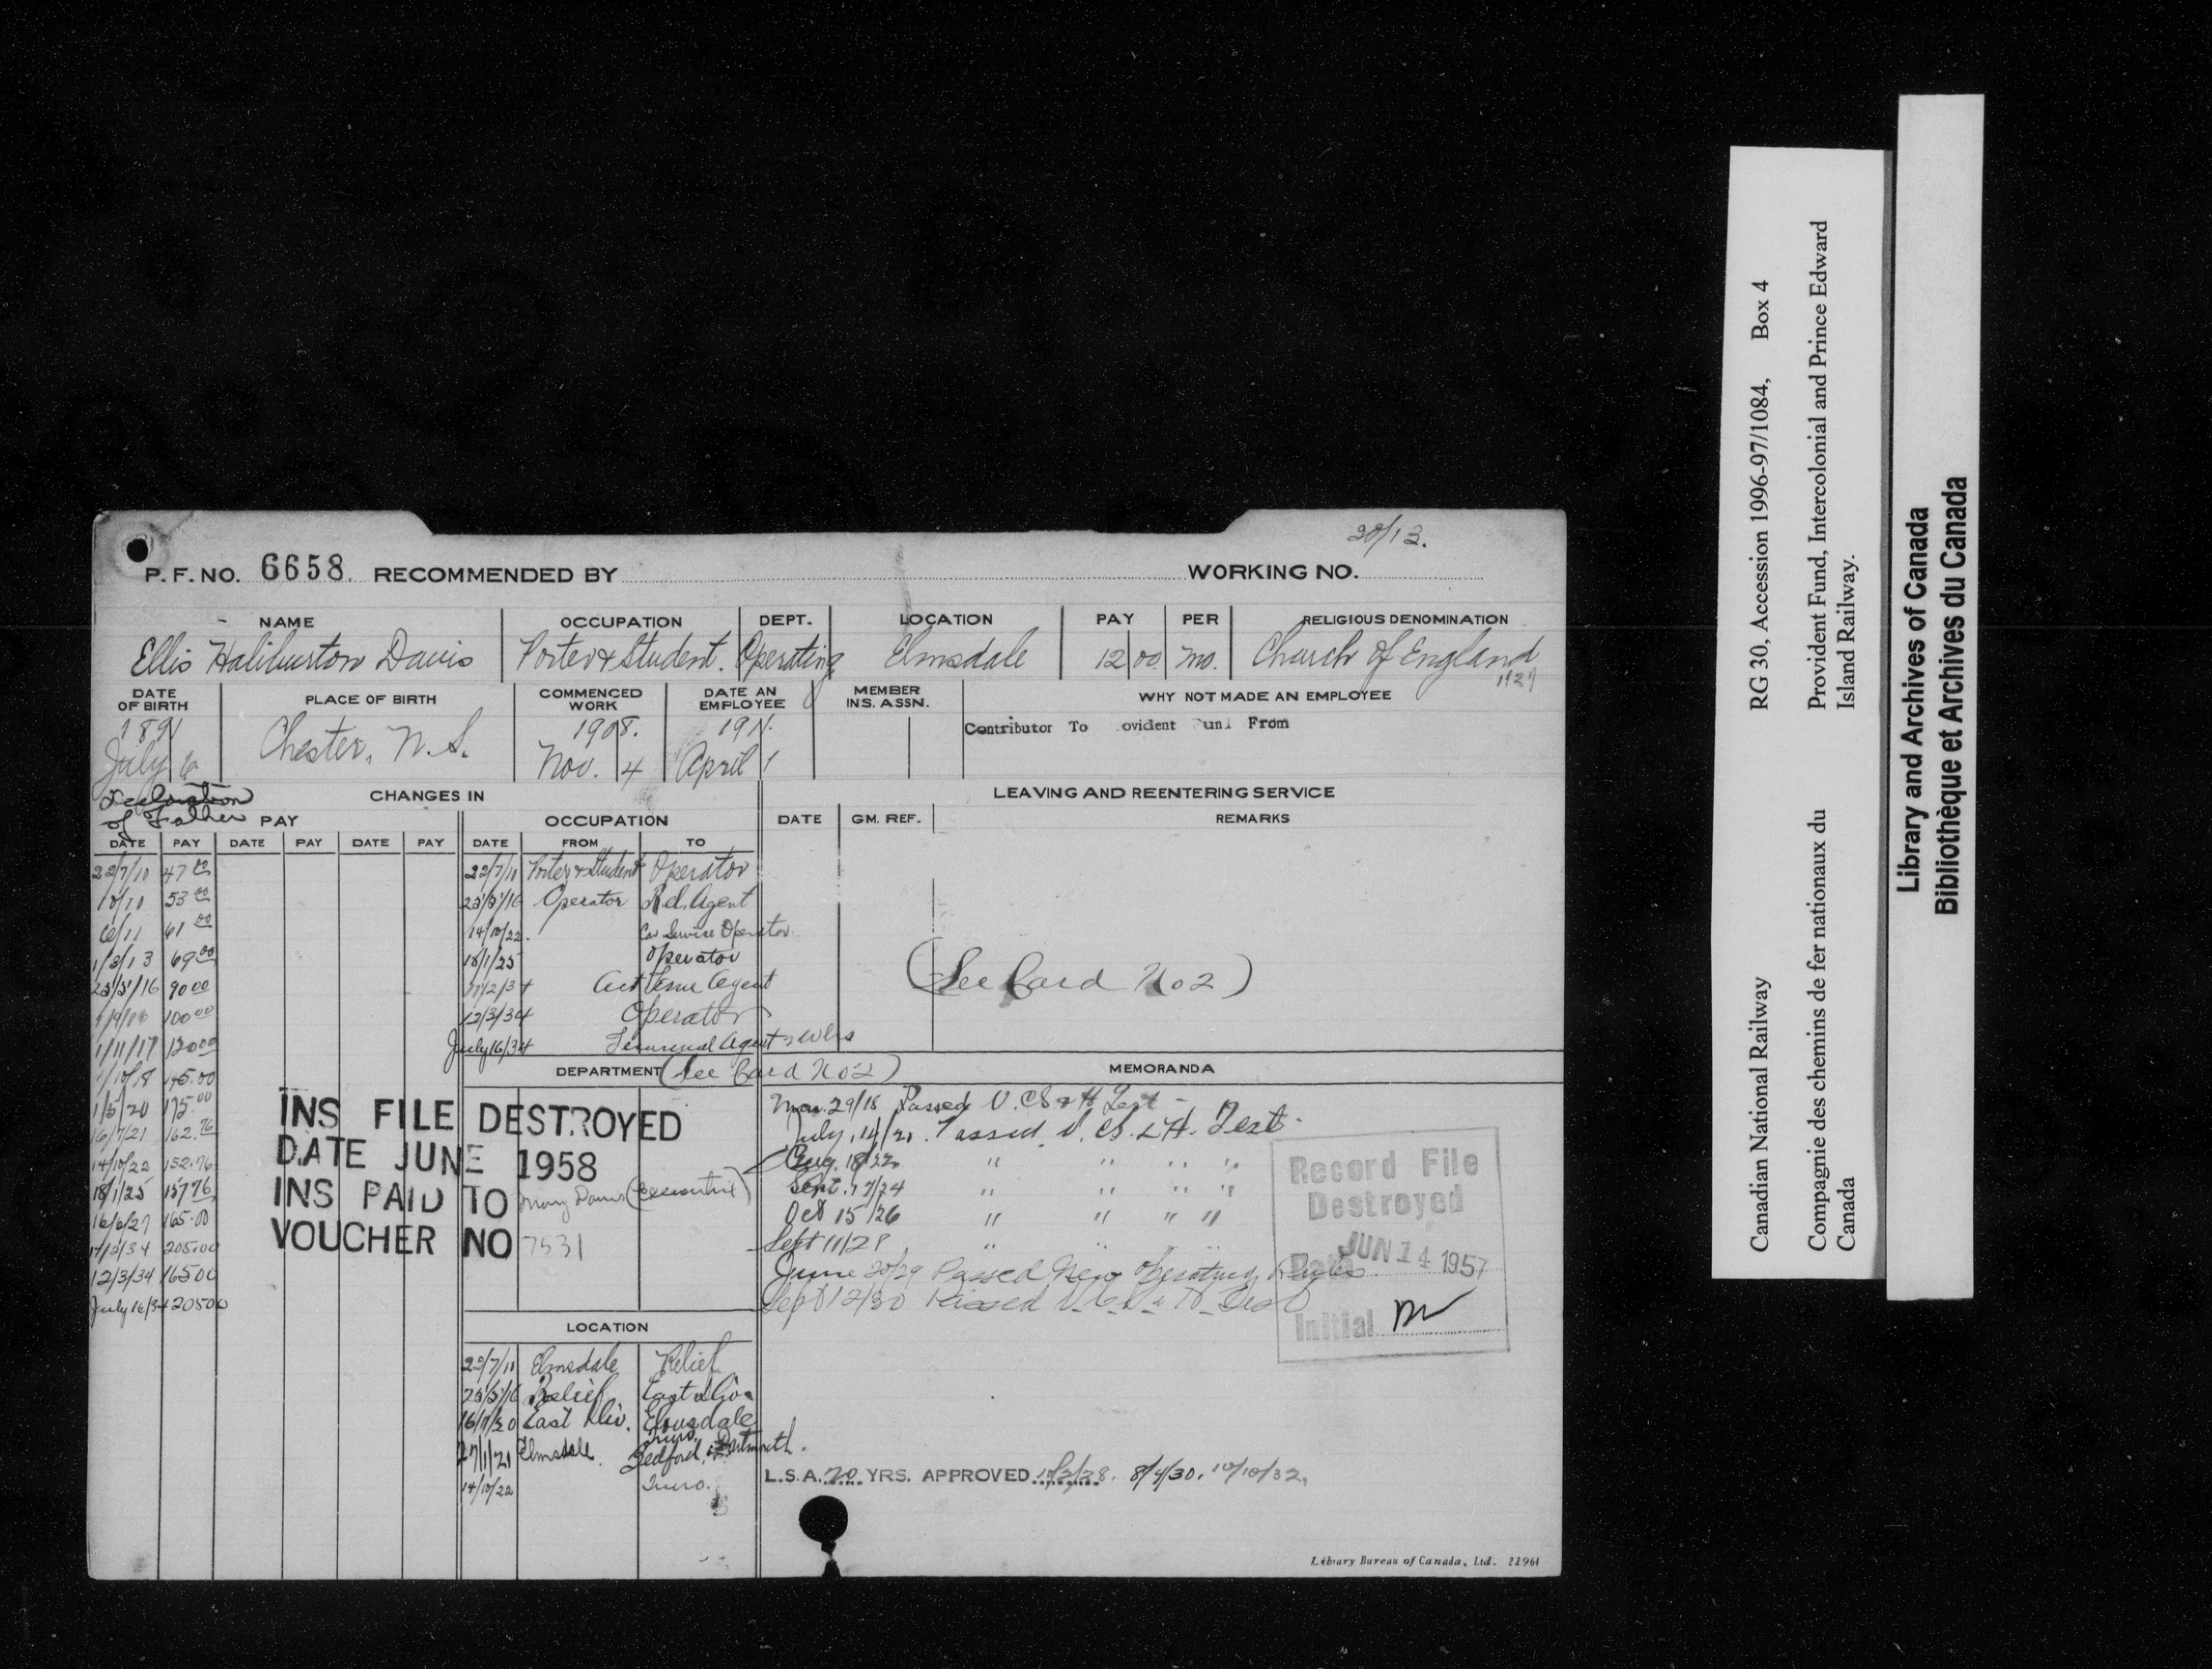 20/13.
P. F. NO. 6658. RECOMMENDED BY WORKING NO.
NAME OCCUPATION DEPT. LOCATION PAY PER RELIGIOUS DENOMINATION
Ellis Haliburton Davis Porter & Student. Operating Elmsdale 12 00 mo. Church of England
1927
DATE OF BIRTH PLACE OF BIRTH COMMENCED WORK DATE AN EMPLOYEE MEMBER INS. ASSN. WHY NOT MADE AN EMPLOYEE
1891 Chester, N.S. 1908. 1911. Contributor To ovident Fund From
July 6 Nov. 4 April 1
Declaration
of Father
CHANGES IN LEAVING AND REENTERING SERVICE
PAY OCCUPATION DATE GM. REF. REMARKS
DATE PAY DATE PAY DATE PAY DATE FROM TO
22/7/10 47 00 22/7/10 Porter & Student Operator
10/10 53 00 23/3/16 Operator Rel. Agent
6/11 61 00 14/10/22. Car Service Operator
1/3/13 69 00 18/1/25 Operator
23/3/16 90 00 17/2/34 Act Term Agent
100 00 12/3/34 Operator
1/11/17 120 00 July 16/34 Terminal Agent
(See Card No 2)
1/10/18 145.00 DEPARTMENT (See Card No 2) MEMORANDA
1/5/20 175.00 Mar. 29/18 Passed V. CS & H Test -
16/7/21 162.76 July, 14/20. Passed V. CS. & H. Test.
14/10/22 152.76 Aug. 18/22 " " " "
18/1/25 157 76 Sept. 17/24 " " " "
16/6/27 165.00 Oct 15/26 " " " "
17/2/34 205.00 Sept 11/28 " " "
12/3/34 165 00 June 20/29 Passed New Operating Rules
July 16/34 205 00 Sept 12/30 Passed V. C. S. & H. Test
INS FILE DESTROYED
DATE JUNE 1958
INS PAID TO Mary Davis (executrix)
VOUCHER NO 7531
Record File
Destroyed
Date JUN 14 1957
Initial
LOCATION
22/7/10 Elmsdale Relief
23/3/16 Relief East Riv.
16/7/20 East Riv. Elmsdale
27/1/21 Elmsdale. Truro, Bedford, Dartmouth.
14/10/22 Truro.
L.S.A. 20 YRS. APPROVED 10/2/28. 8/4/30. 10/10/32,
Library Bureau of Canada, Ltd. 22961
Canadian National Railway RG 30, Accession 1996-97/1084, Box 4
Compagnie des chemins de fer nationaux du Canada Provident Fund, Intercolonial and Prince Edward Island Railway.
Library and Archives of Canada
Bibliothèque et Archives du Canada